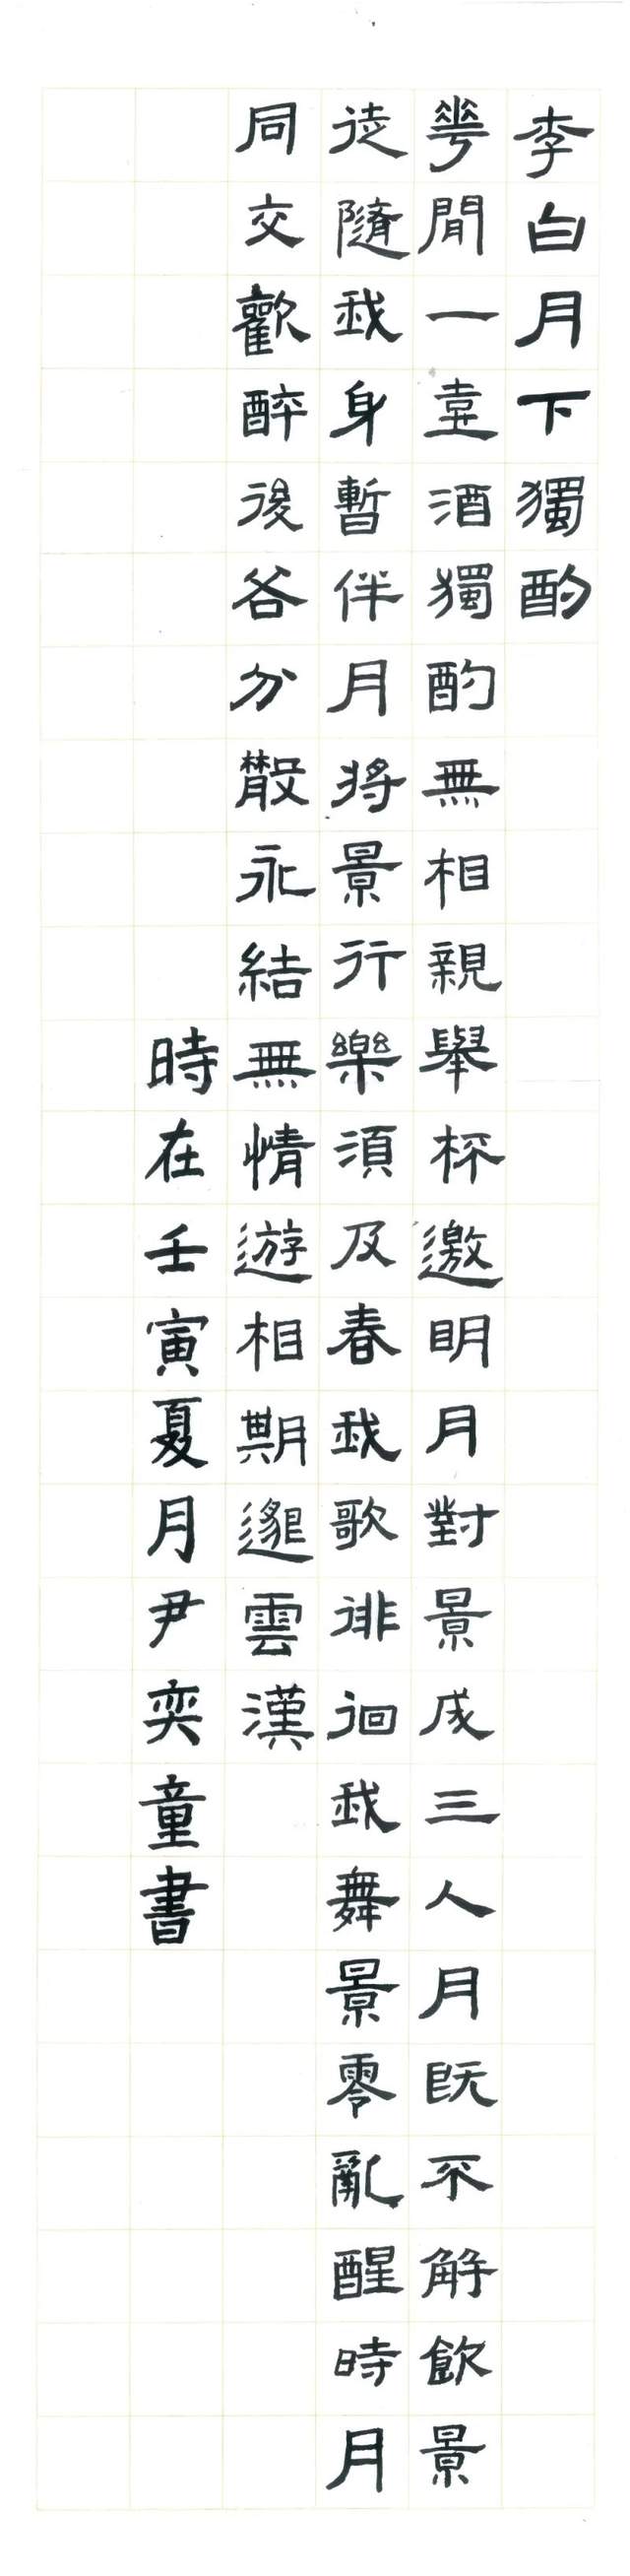 李白月下獨酌
華閒一壺酒獨酌無相親舉杯邀明月對景成三人月既不解飲景
徒隨我身暫伴月將景行樂須及春我歌徘徊我舞景零亂醒時月
同交歡醉後各分散永結無情遊相期邈雲漢
時在壬寅夏月尹奕童書